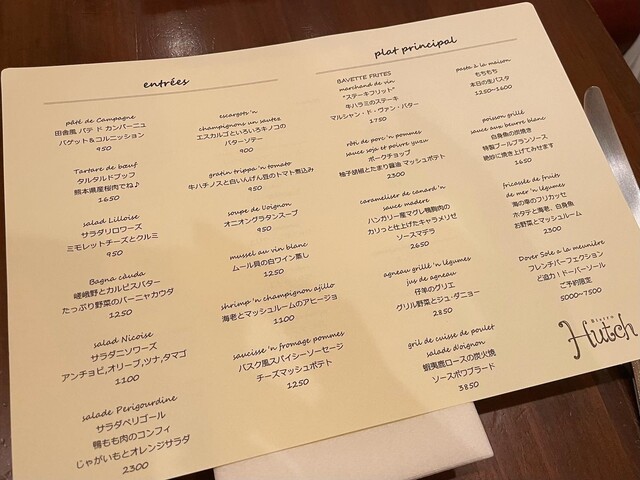 entrées
pâté de Campagne
田舎風 パテ ド カンパーニュ
バゲット＆コルニッション
950
Tartare de bœuf
タルタルドブッフ
熊本県産桜肉でね♪
1650
salad Lilloise
サラダリロワーズ
ミモレットチーズとクルミ
950
Bagna càuda
嵯峨野とカルピスバター
たっぷり野菜のバーニャカウダ
1250
salad Nicoise
サラダニソワーズ
アンチョビ,オリーブ,ツナ,タマゴ
1100
salade Perigourdine
サラダペリゴール
鴨もも肉のコンフィ
じゃがいもとオレンジサラダ
2300
escargots 'n
champignons un sautez
エスカルゴといろいろキノコの
バターソテー
900
gratin trippa 'n tomato
牛ハチノスと白いんげん豆のトマト煮込み
950
soupe de l'oignon
オニオングラタンスープ
950
mussel au vin blanc
ムール貝の白ワイン蒸し
1250
shrimp 'n champignon ajillo
海老とマッシュルームのアヒージョ
1100
saucisse 'n fromage pommes
バスク風スパイシーソーセージ
チーズマッシュポテト
1250
plat principal
BAVETTE FRITES
marchand de vin
"ステーキフリット"
牛ハラミのステーキ
マルシャン・ド・ヴァン・バター
1750
rôti de porc 'n pommes
sauce soja et poivre yuzu
ポークチョップ
柚子胡椒とたまり醤油 マッシュポテト
2300
carameliser de canard 'n
sauce madere
ハンガリー産マグレ鴨胸肉の
カリっと仕上げたキャラメリゼ
ソースマデラ
2650
agneau grillé 'n légumes
jus de agneau
仔羊のグリエ
グリル野菜とジュ・ダニョー
2850
gril de cuisse de poulet
salade d'oignon
蝦夷鹿ロースの炭火焼
ソースポワブラード
3850
pasta à la maison
もちもち
本日の生パスタ
1250~1600
poisson grillé
sauce au beurre blanc
白身魚の炭焼き
特製ブールブランソース
絶妙に焼き上げてみせます
1650
fricassée de fruits
de mer 'n légumes
海の幸のフリカッセ
ホタテと海老、白身魚
お野菜とマッシュルーム
2300
Dover Sole a la meunière
フレンチパーフェクション
ど迫力！ドーバーソール
ご予約限定
5000~7500
Bistro
Hutch